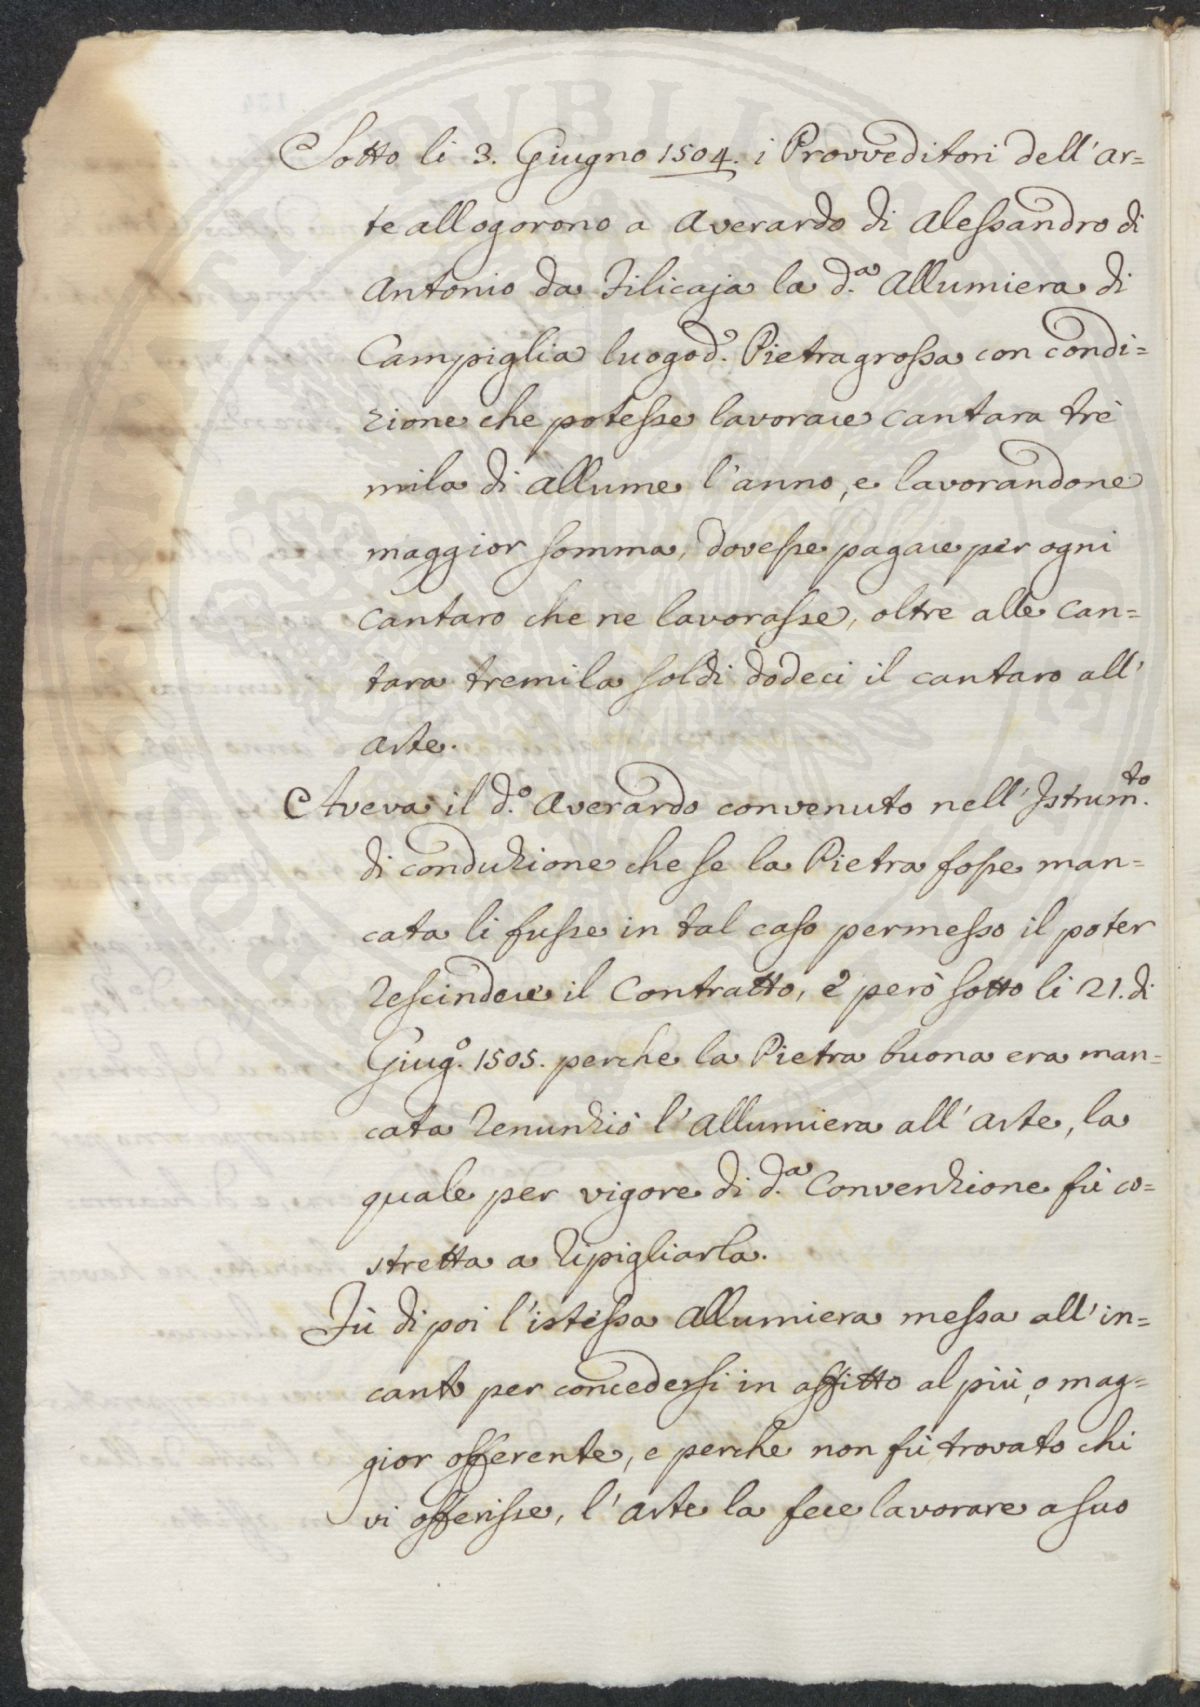 Sotto li 3. Giugno 1504. i Provveditori dell'ar=
te allogorono a Averardo di Alessandro di
Antonio da Filicaja la d.ª Allumiera di
Campiglia luogo d.º Pietragrossa con condi=
zione che potesse lavorare cantara trè
mila di allume l'anno, e lavorandone
maggior somma, dovesse pagare per ogni
cantaro che ne lavorasse, oltre alle can=
tara tremila soldi dodeci il cantaro all'
Arte.
Aveva il d.º Averardo convenuto nell'Istrum.to
di conduzione che se la Pietra fosse man=
cata li fusse in tal caso permesso il poter
rescindere il Contratto, è però sotto li 21. di
Giug.º 1505. perche la Pietra buona era man=
cata renunziò l'Allumiera all'Arte, la
quale per vigore di d.ª Convenzione fù co=
stretta a ripigliarla.
Fù di poi l'istessa Allumiera messa all'in=
canto per concedersi in affitto al più, o mag=
gior offerente, e perche non fù trovato chi
vi offerisse, l'Arte la fece lavorare a suo